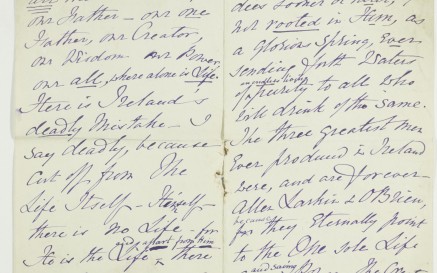 are
our Father - our one
Father, our Creator,
our Wisdom our Power
our all, where alone is Life.
Here is Ireland's
deadly Mistake - I
say deadly, because
cut off from The
Life Itself -
there is no Life - for
and apart from Him
He is the Life & there
not rooted in Him, as
a glorious Spring, Ever
sending forth Waters
of purity to all who
will drink of the same.
The three greatest men
Ever produced in Ireland
were, and are forever
Allen Larkin & O'Brien,
because
for they Eternally point
to the One sole Life
and saving